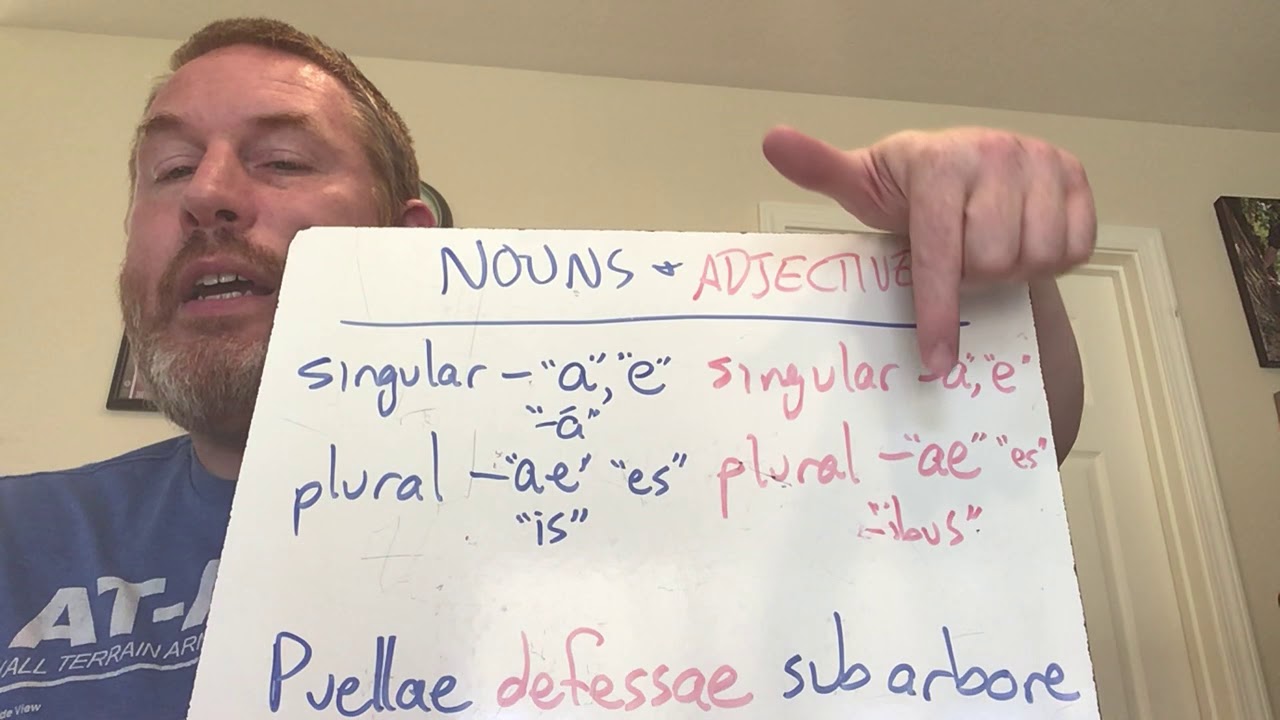 NOUNS + ADJECTIVE
singular - "a", "e" singular - a", "e"
"-á"
plural - "ae" "es" plural - "ae" "es"
"is" - "ibus"
Puellae defessae sub arbore
AT-
TERRAIN
View